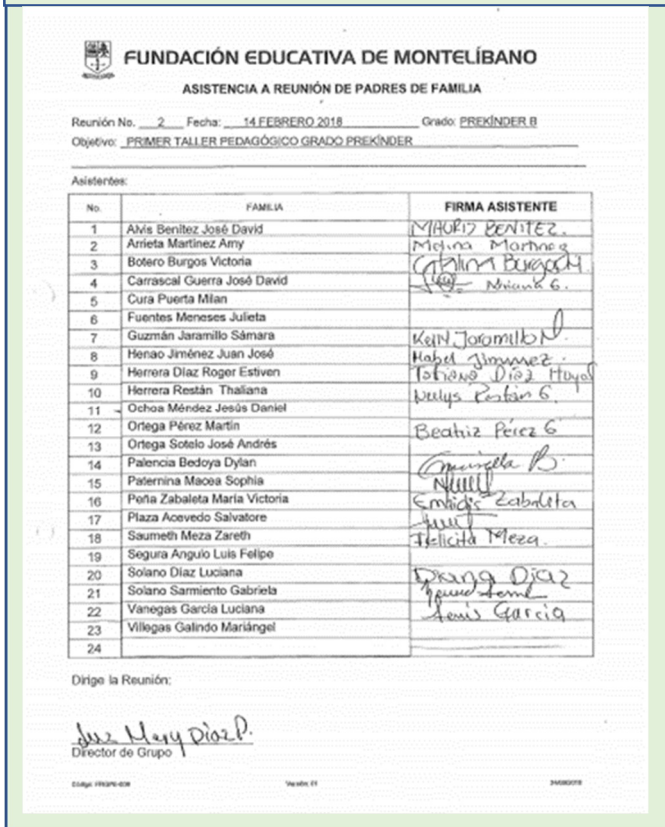 FUNDACIÓN EDUCATIVA DE MONTELÍBANO
ASISTENCIA A REUNIÓN DE PADRES DE FAMILIA
Reunión No. 2 Fecha: 14 FEBRERO 2018 Grado: PREKÍNDER B
Objetivo: PRIMER TALLER PEDAGÓGICO GRADO PREKÍNDER
Asistentes:
No. FAMILIA FIRMA ASISTENTE
1 Alvis Benítez José David BENITEZ.
2 Arrieta Martínez Amy Melina Martinez
3 Botero Burgos Victoria Catalina Burgos
4 Carrascal Guerra José David
5 Cura Puerta Milan
6 Fuentes Meneses Julieta
7 Guzmán Jaramillo Sámara Jaramillo
8 Henao Jiménez Juan José Mabel Jimenez.
9 Herrera Díaz Roger Estiven Tatiana Díaz Hoyos
10 Herrera Restán Thaliana Restán G.
11 Ochoa Méndez Jesús Daniel
12 Ortega Pérez Martín Beatriz Pérez G
13 Ortega Sotelo José Andrés
14 Palencia Bedoya Dylan
15 Paternina Macea Sophia
16 Peña Zabaleta María Victoria Zabaleta
17 Plaza Acevedo Salvatore
18 Saumeth Meza Zareth Felicita Meza.
19 Segura Angulo Luis Felipe
20 Solano Díaz Luciana Diana Díaz
21 Solano Sarmiento Gabriela
22 Vanegas García Luciana García
23 Villegas Galindo Mariángel
24
Dirige la Reunión:
Luz Mary Díaz P.
Director de Grupo
Versión: 01